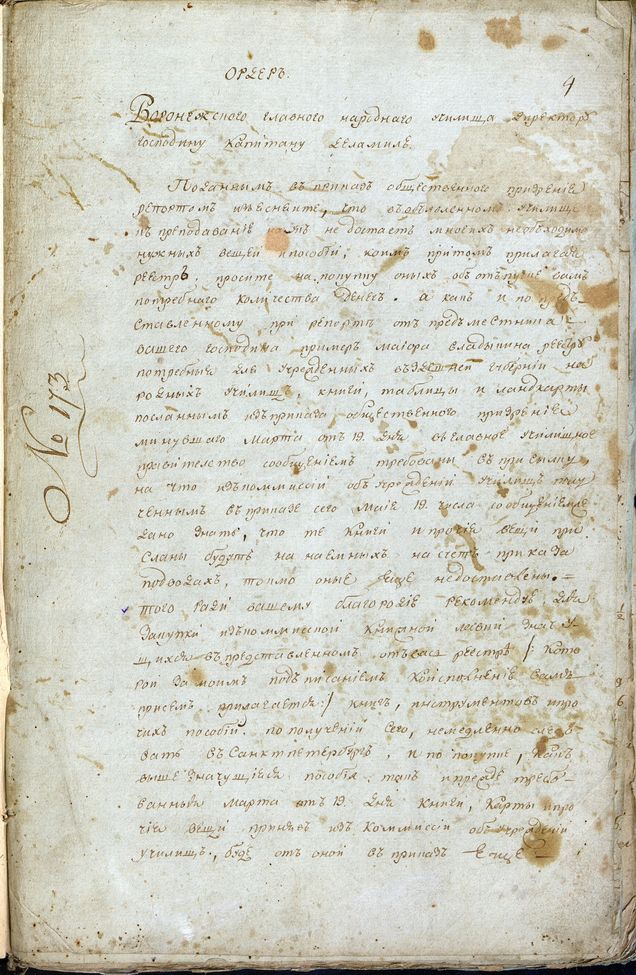 ОРДЕРЪ.
4
Воронежского главного народнаго училища директору
господину капитану Деламиль.
Поданнымъ въ приказъ общественного призрения
репортомъ изъясняите, что въ объявленномъ училище
къ преподаванию наукъ не достаетъ многихъ необходимо
нужныхъ вещей и пособий, коимъ притомъ прилагая
реэстръ, просите на покупку оныхъ объ отпуске вамъ
потребнаго количества денегъ. а какъ и по пред
ставленному при репорте отъ предместника
вашего господина примеръ маиора владыкина реэстру
потребныя для учрежденныхъ въ здешней губернии на
родныхъ училищъ, книги, таблицы и ландкарты
посланнымъ изъ приказа общественного призрения
минувшаго Марта отъ 19. дня в главное училищное
правительство сообщениемъ требованы въ присылку
на что изъ коммиссии объ учреждении училищъ полу
ченнымъ въ приказе сего маия 19. числа сообщениемъ
дано знать, что те книги и прочие вещи при
сланы будутъ на наемныхъ на счетъ приказа
подводахъ, токмо оные еще недоставлены. —
того ради вашему благородию рекомендую для
закупки изъ коммисской книжной лавки знач у
щихся въ представленномъ отъ васъ реэстре /: кото
рой за моимъ подписаниемъ к исполнению вамъ
присемъ прилагается :/ книгъ, инструментовъ и про
чихъ пособий. по получении сего, немедленно след
вать въ Санктпетербургъ, и по покупке, какъ
выше значущияся пособия, такъ и прежде требо
ванныя Марта отъ 19. дня книги, карты и про
чие вещи принявъ изъ Коммиссии объ учреждении
училищъ, буде отъ оной въ приказъ еще
No 173